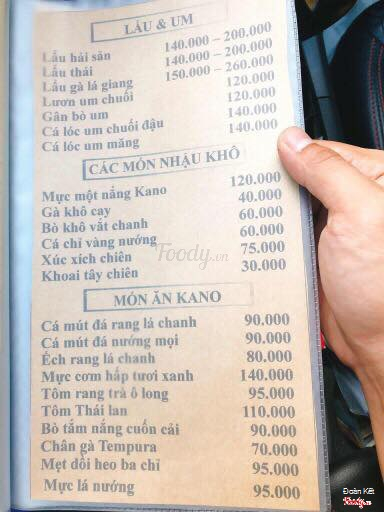 LẨU & UM
Lẩu hải sản 140.000 – 200.000
Lẩu thái 140.000 – 200.000
Lẩu gà lá giang 150.000 – 260.000
Lươn um chuối 120.000
Gân bò um 120.000
Cá lóc um chuối đậu 140.000
Cá lóc um măng 140.000
CÁC MÓN NHẬU KHÔ
Mực một nắng Kano 120.000
Gà khô cay 40.000
Bò khô vắt chanh 60.000
Cá chỉ vàng nướng 60.000
Xúc xích chiên 75.000
Khoai tây chiên 30.000
Foody.vn
MÓN ĂN KANO
Cá mút đá rang lá chanh 90.000
Cá mút đá nướng mọi 90.000
Ếch rang lá chanh 80.000
Mực cơm hấp tươi xanh 140.000
Tôm rang trà ô long 95.000
Tôm Thái lan 110.000
Bò tắm nắng cuốn cải 90.000
Chân gà Tempura 70.000
Mẹt dồi heo ba chỉ 95.000
Mực lá nướng 95.000
Đoàn Kết
Foody.vn